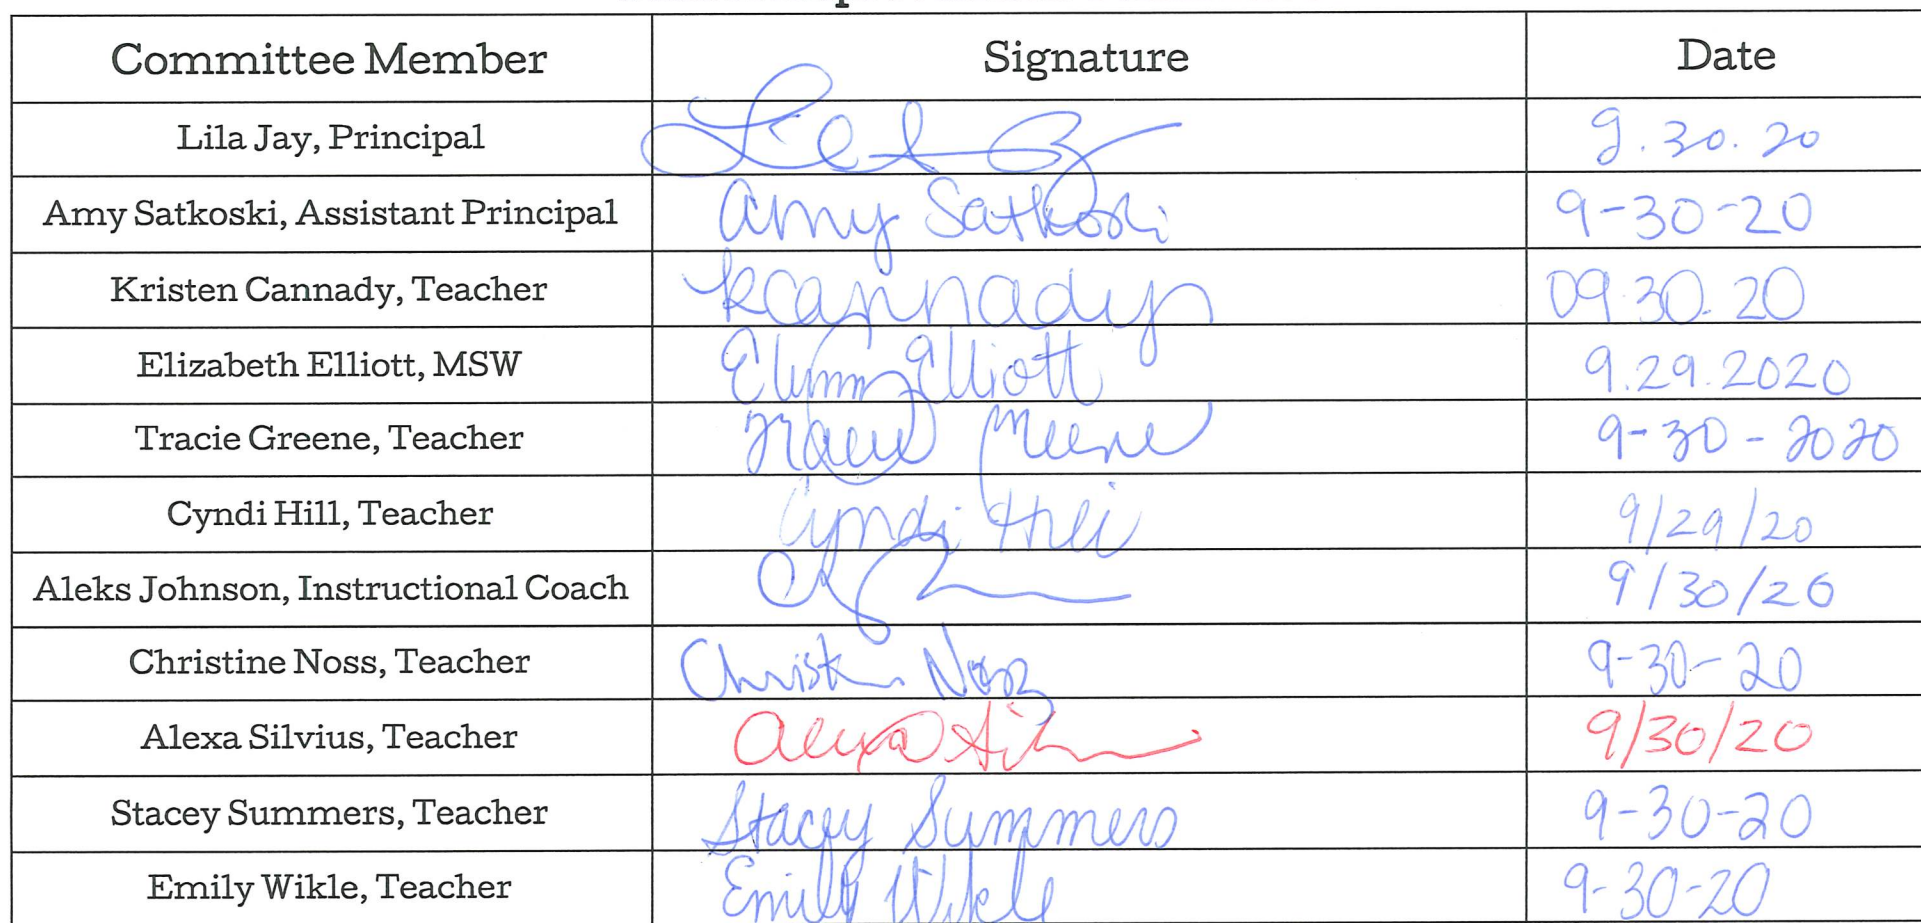 Committee Member Signature Date
Lila Jay, Principal 9.30.20
Amy Satkoski, Assistant Principal Amy Satkoski 9-30-20
Kristen Cannady, Teacher KCannady 09.30.20
Elizabeth Elliott, MSW Elliott 9.29.2020
Tracie Greene, Teacher Tracie Greene 9-30-2020
Cyndi Hill, Teacher Cyndi Hill 9/29/20
Aleks Johnson, Instructional Coach 9/30/20
Christine Noss, Teacher Noss 9-30-20
Alexa Silvius, Teacher Alexa 9/30/20
Stacey Summers, Teacher Stacey Summers 9-30-20
Emily Wikle, Teacher Emily Wikle 9-30-20